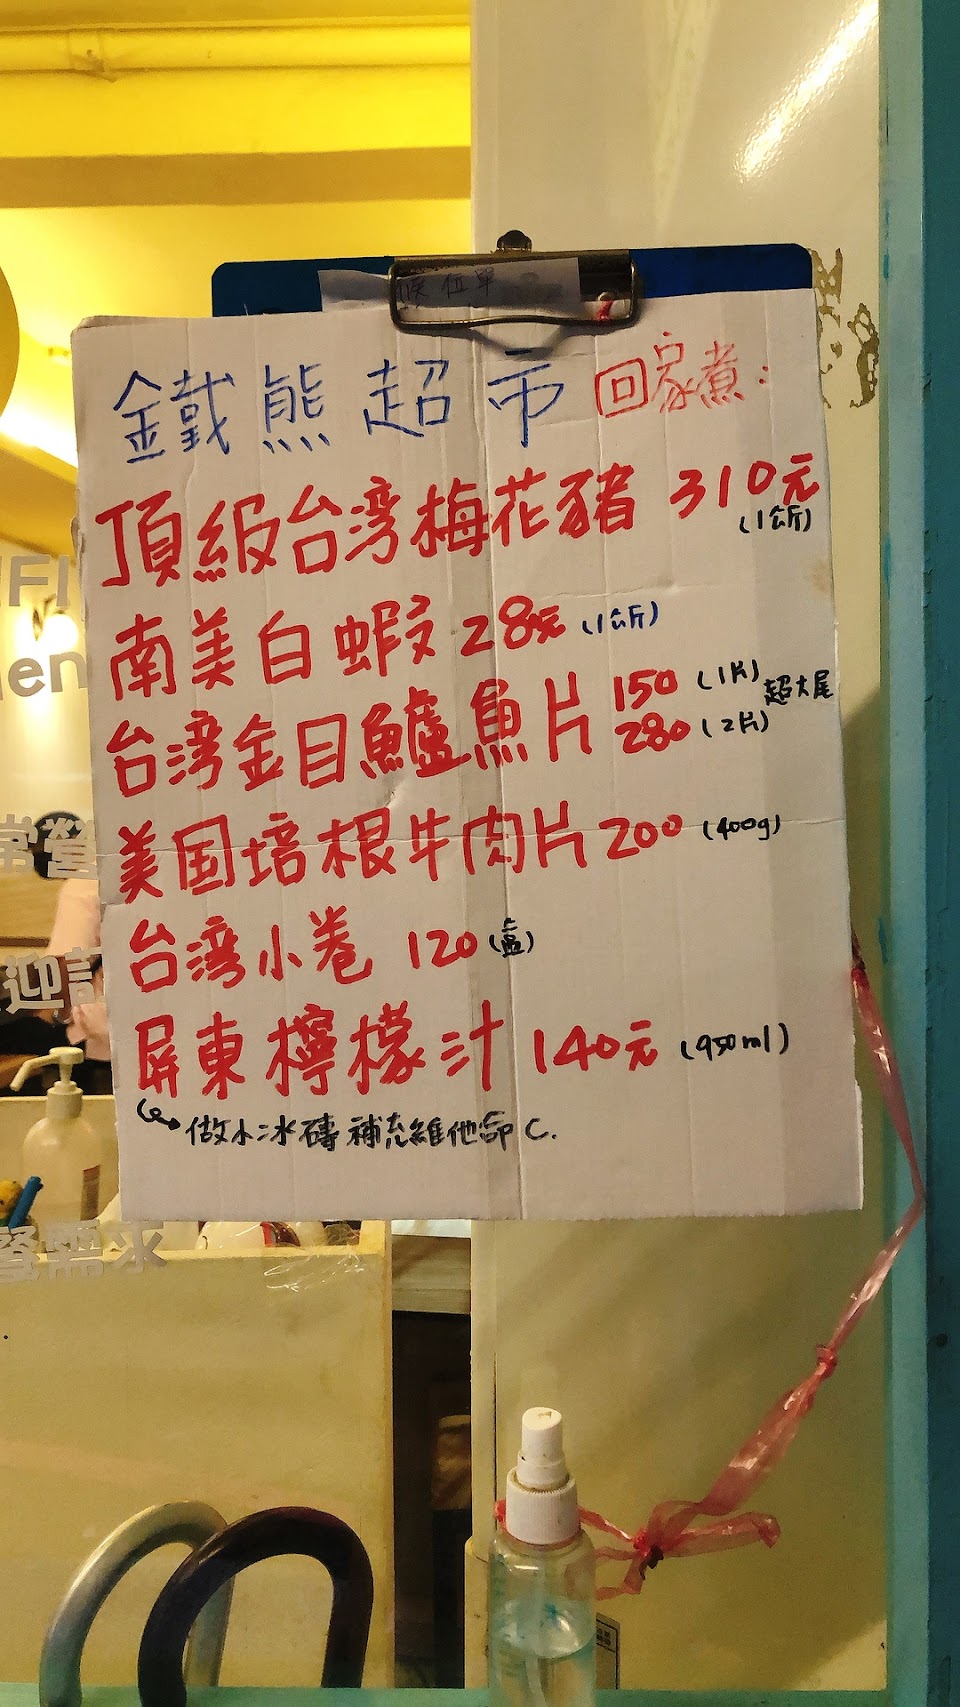 候位單
鐵熊超市 回家煮:
頂級台湾梅花豬 310元
(1公斤)
南美白蝦 28元 (1公斤)
台湾金目鱸魚片 150 (1片) 超大尾
280 (2片)
美国培根牛肉片 200 (400g)
台湾小卷 120 (盒)
屏東檸檬汁 140元 (950ml)
做小冰磚 補充維他命C.
常營
迎訂
餐需求